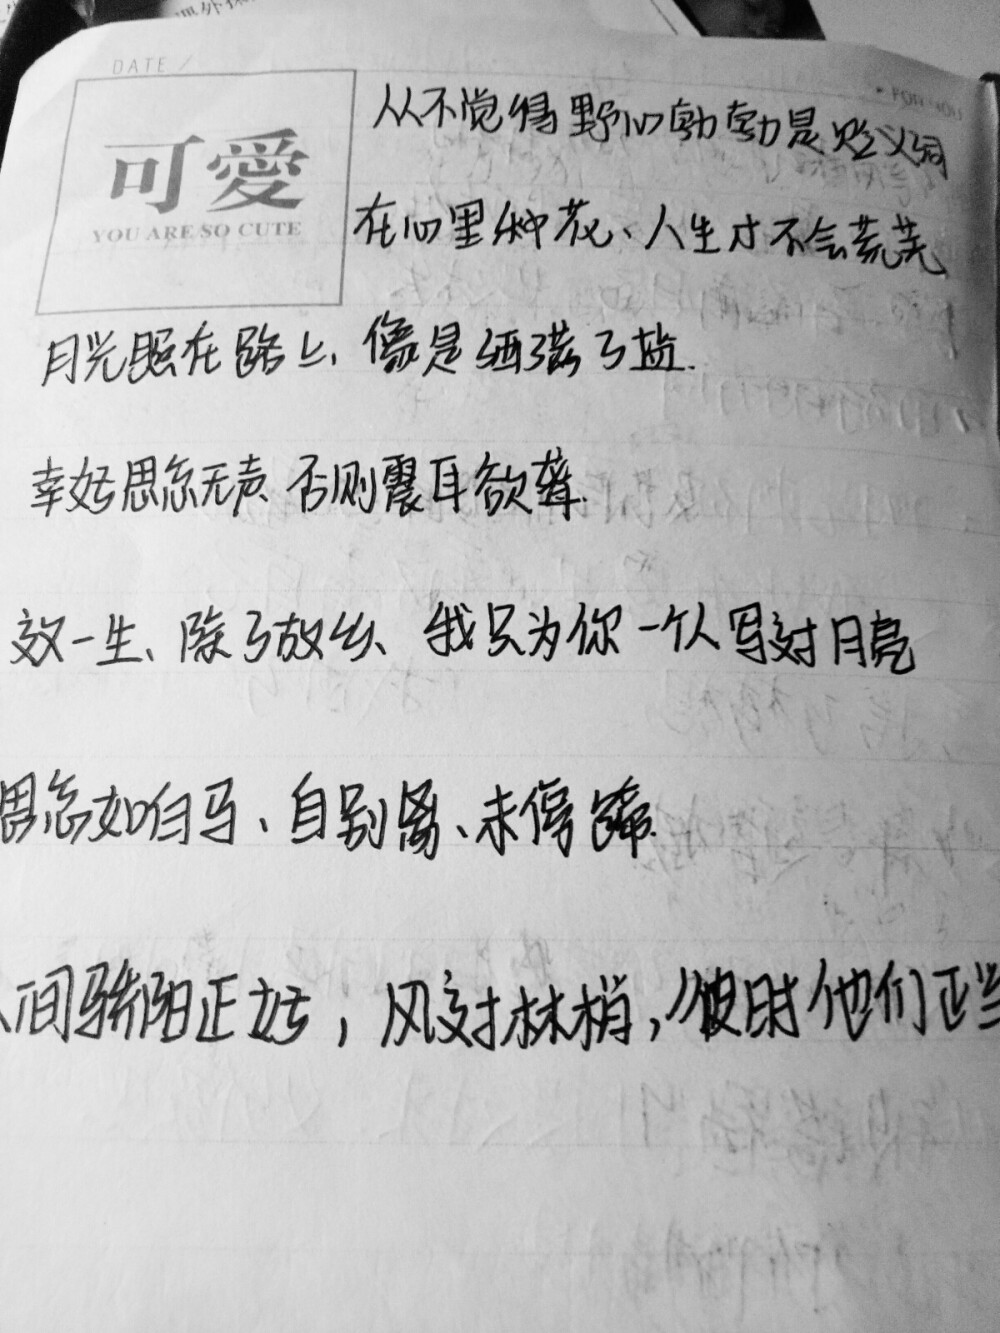 DATE /
可愛
YOU ARE SO CUTE
• FOR YOU
从不觉得野心勃勃是贬义词
在心里种花、人生才不会荒芜
月光照在路上、像是洒满了盐.
幸好思念无声 否则震耳欲聋.
这一生、除了故乡、我只为你一个人写过月亮
思念如白马、自别离、未停蹄.
人间骄阳正好，风过林梢，彼时他们正当